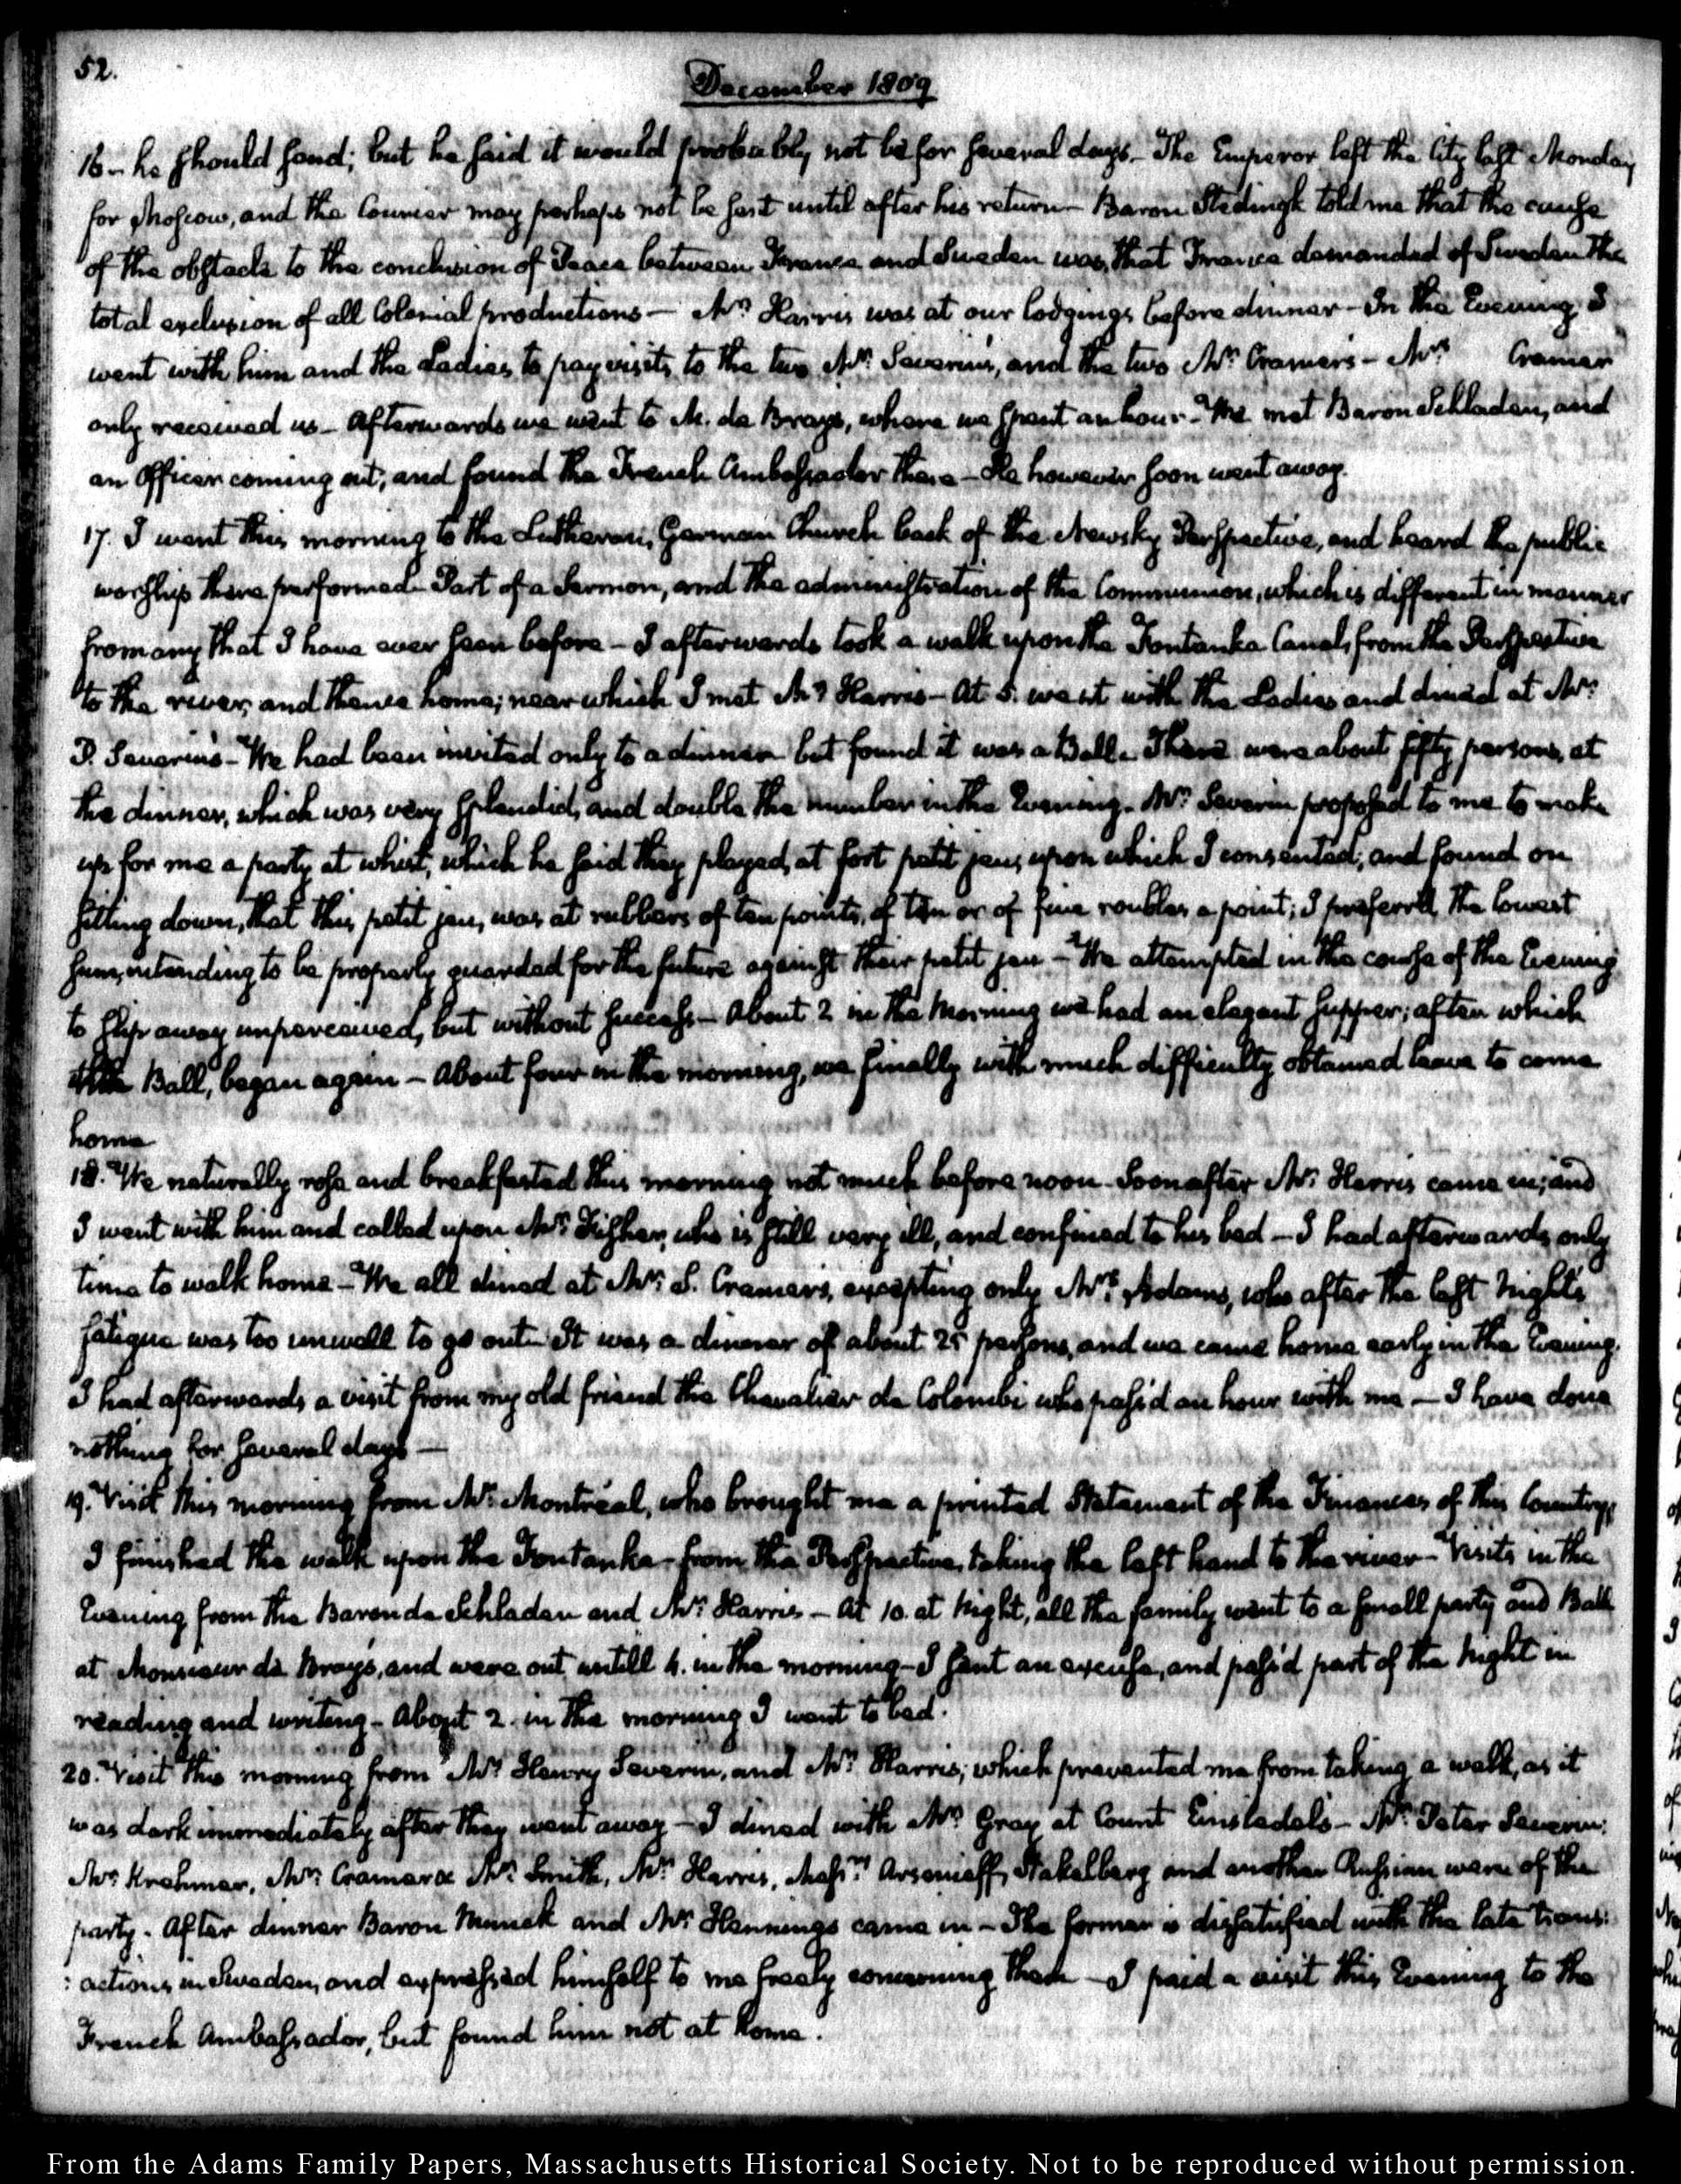 52.
December 1809
16 – he should send; but he said it would probably not be for several days – The Emperor left the City last Monday
for Moscow, and the Courier may perhaps not be sent until after his return – Baron Stedingk told me that the cause
of the obstacle to the conclusion of Peace between France and Sweden was, that France demanded of Sweden the
total exclusion of all Colonial productions – Mr. Harris was at our lodgings before dinner – In the Evening, I
went with him and the Ladies to pay visits to the two Mr. Severins, and the two Mr. Cramers – Mrs. Cramer
only received us – Afterwards we went to M. de Brays, where we spent an hour – We met Baron Schladen, and
an Officer coming out, and found the French Ambassador there – He however soon went away.
17. I went this morning to the Lutheran, German Church back of the Newsky Perspective, and heard the public
worship there performed – Part of a Sermon, and the administration of the Communion, which is different in manner
from any that I have ever seen before – I afterwards took a walk upon the Fontanka Canal, from the Perspective
to the river, and thence home; near which I met Mr. Harris – At 5. went with the Ladies and dined at Mr.
P. Severin's – We had been invited only to a dinner but found it was a Ball – There were about fifty persons, at
the dinner, which was very splendid, and double the number in the Evening – Mr. Severin proposed to me to make
up for me a party at whist, which he said they played, at fort petit jeu; upon which I consented; and found on
sitting down, that this petit jeu, was at rubbers of ten points, of ten or of five roubles a point; I preferr'd the lowest
sum, intending to be properly guarded for the future against their petit jeu – We attempted in the course of the Evening
to slip away unperceived, but without success – About 2 in the Morning we had an elegant supper; after which
the Ball, began again – About four in the morning, we finally with much difficulty obtained leave to come
home
18. We naturally rose and breakfasted this morning not much before noon – Soon after Mr. Harris came in; and
I went with him and called upon Mr. Fisher, who is still very ill, and confined to his bed – I had afterwards only
time to walk home – We all dined at Mr. S. Cramer's, excepting only Mrs. Adams, who after the last Night's
fatigue was too unwell to go out – It was a dinner of about 25 persons, and we came home early in the Evening.
I had afterwards a visit from my old friend the Chevalier de Colombi who pass'd an hour with me – I have done
nothing for several days –
19. Visit this morning from Mr. Montréal, who brought me a printed Statement of the Finances of this Country,
I finished the walk upon the Fontanka – from the Perspective, taking the left hand to the river – Visits in the
Evening from the Baron de Schladen and Mr. Harris – At 10. at Night, all the family went to a small party and Ball
at Monsieur de Bray's, and were out untill 4. in the morning – I sent an excuse, and pass'd part of the Night in
reading and writing – About 2. in the morning I went to bed.
20. Visit this morning from Mr. Henry Severin, and Mr. Harris; which prevented me from taking a walk, as it
was dark immediately after they went away – I dined with Mr. Gray at Count Einsiedel's – Mr. Peter Severin:
Mr. Krehmer, Mr. Cramer & Mr. Smith, Mr. Harris, Messrs. Arsenieff, Stakelberg and another Russian were of the
party. After dinner Baron Munck and Mr. Hennings came in – The former is dissatisfied with the late trans:
:actions in Sweden, and expressed himself to me freely concerning them – I paid a visit this Evening to the
French Ambassador, but found him not at home.
From the Adams Family Papers, Massachusetts Historical Society. Not to be reproduced without permission.